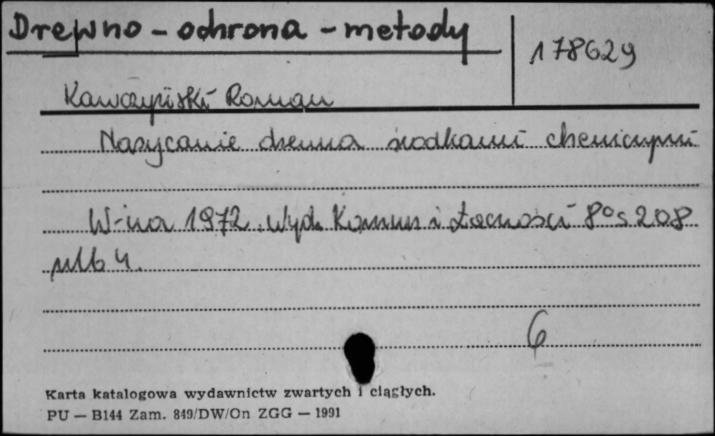 Drewno - ochrona - metody
178629
Kawczyński Roman
Nasycanie drewna środkami chemicznymi
W-wa 1972. Wyd. Komun i Łączności 8° s 208
nlb 4.
6
Karta katalogowa wydawnictw zwartych i ciągłych.
PU — B144 Zam. 849/DW/On ZGG — 1991